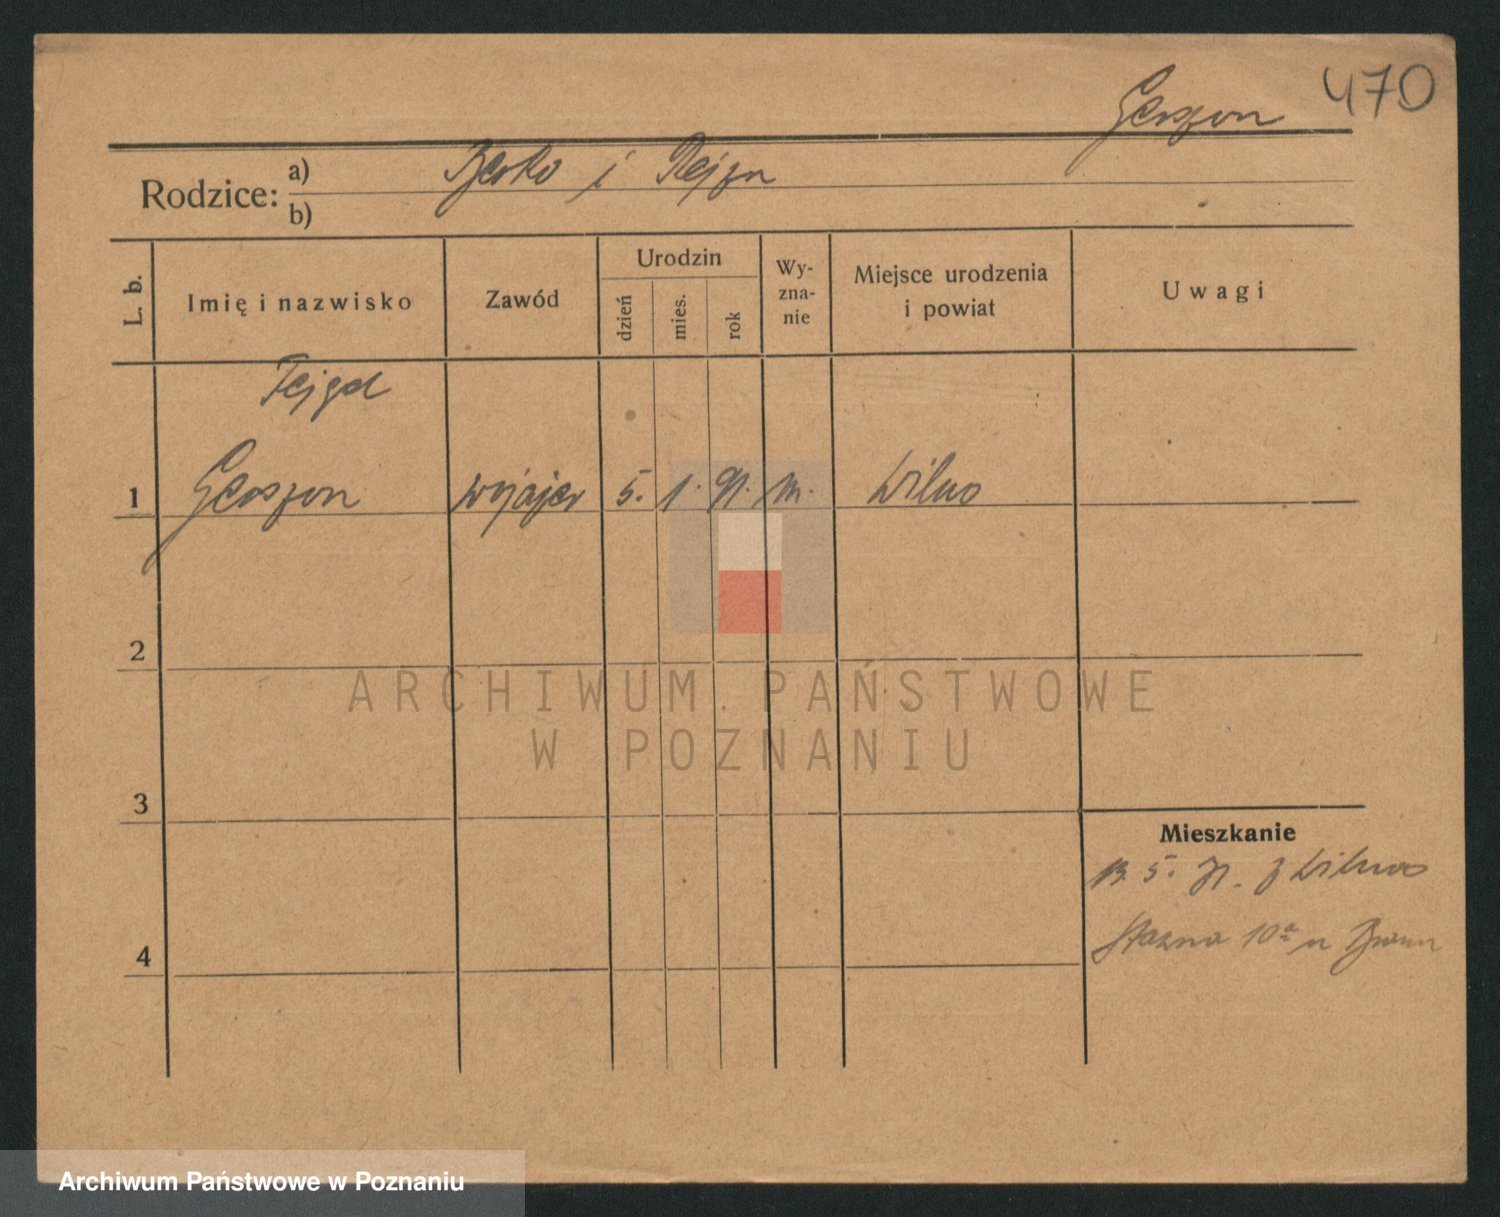 470
Gerszon
Rodzice:
a) Berko i Rejza
b)
L. b.
Imię i nazwisko
Zawód
Urodzin
dzień
mies.
rok
Wy-
zna-
nie
Miejsce urodzenia
i powiat
Uwagi
Fejgel
1 Gerszon wojajer 5. 1. 91. m. Wilno
2
3
4
Mieszkanie
13. 5. 31. z Wilna
10a u
ARCHIWUM PAŃSTWOWE
W POZNANIU
Archiwum Państwowe w Poznaniu